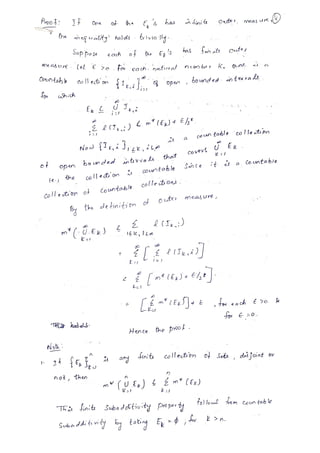 Proof: If one of the Ek's has infinite outer measure
the inequality holds trivially.
Suppose each of the Ek's has finite outer
measure. Let ε > 0 for each natural number k, there is a
countable collection {Ik,i}∞i=1 of open, bounded intervals
for which
Ek ⊆ ∞∪i=1 Ik,i
∞Σi=1 ℓ(Ik,i) < m*(Ek) + ε/2^k
Now {Ik,i}1≤k,i≤∞ is a countable collection
of open bounded intervals that covers ∞∪k=1 Ek
i.e., the collection is countable since it is a countable
collection of countable collections.
By the definition of outer measure,
m*(∞∪k=1 Ek) ≤ Σ1≤k,i≤∞ ℓ(Ik,i)
= ∞Σk=1 [∞Σi=1 ℓ(Ik,i)]
< ∞Σk=1 [m*(Ek) + ε/2^k]
= [∞Σk=1 m*(Ek)] + ε, for each ε > 0 &
for ε = 0.
Hence the proof.
Note:
1. If {Ek}nk=1 is any finite collection of sets, disjoint or
not, then
m*(n∪k=1 Ek) ≤ nΣk=1 m*(Ek)
This finite subadditivity property follows from countable
subadditivity by taking Ek = φ, for k > n.